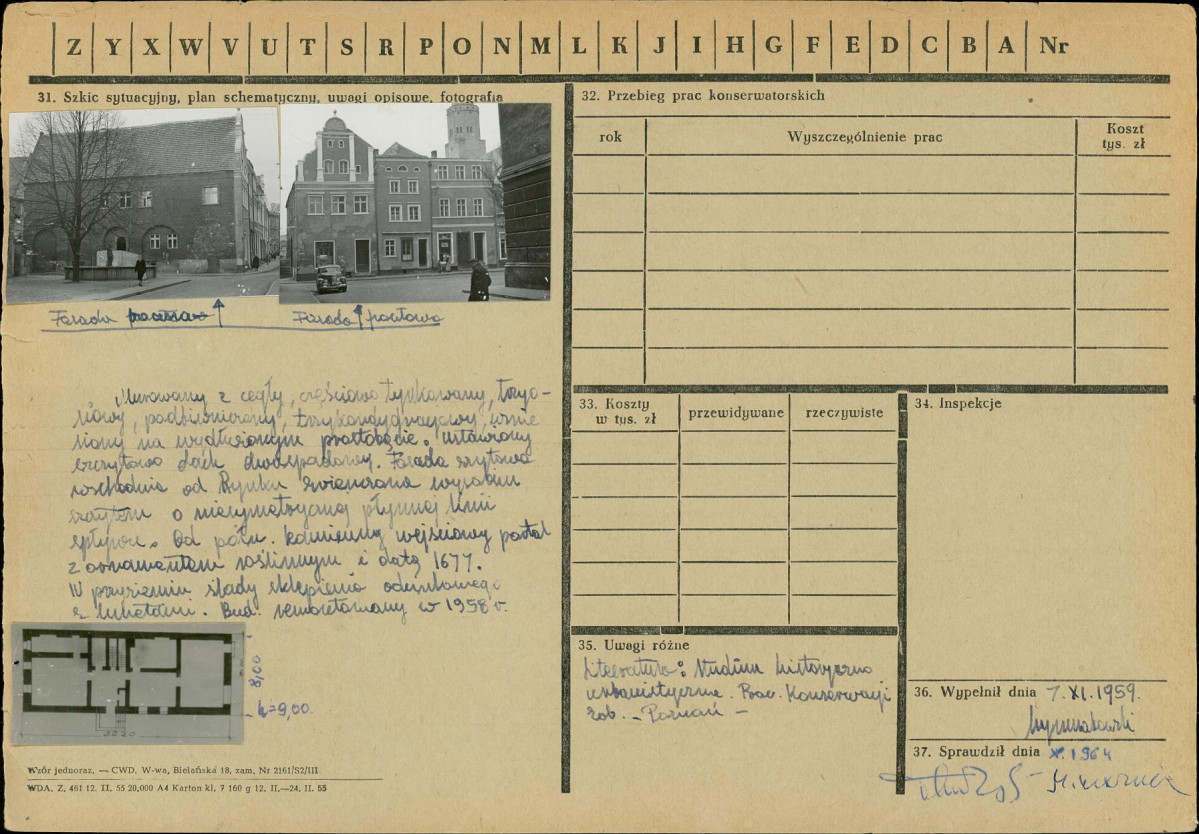 Z Y X W V U T S R P O N M L K J I H G F E D C B A Nr
31. Szkic sytuacyjny, plan schematyczny, uwagi opisowe, fotografia
Fasada
Fasada frontowa
Murowany z cegły, częściowo tynkowany, trzyo-
siowy, podpiwniczony, trzykondygnacyjowy, wznie
siony na wydłużonym prostokącie. ustawiony
szczytowo dach dwuspadowy. Fasada szczytowa
wschodnia od Rynku zwieńczona wysokim
szczytem o niesymetrycznej płynnej linii
spływów. Od półn. kamienny wejściowy portal
z ornamentem roślinnym i datą 1677.
W przyziemiu ślady sklepienia odcinkowego
z lunetami. Bud. remontowany w 1958 r.
8,00
h=9,00.
2220
Wzór jednoraz. — CWD. W-wa, Bielańska 18, zam. Nr 2161/S2/III
WDA. Z. 461 12. II. 55 20,000 A4 Karton kl. 7 160 g 12. II.—24. II. 55
32. Przebieg prac konserwatorskich
rok Wyszczególnienie prac Koszt
tys. zł
33. Koszty
w tys. zł przewidywane rzeczywiste
34. Inspekcje
35. Uwagi różne
Literatura: Studium historyczno
urbanistyczne. Prac. Konserwacji
Zab. - Poznań -
36. Wypełnił dnia 7.XI.1959.
37. Sprawdził dnia X.1964